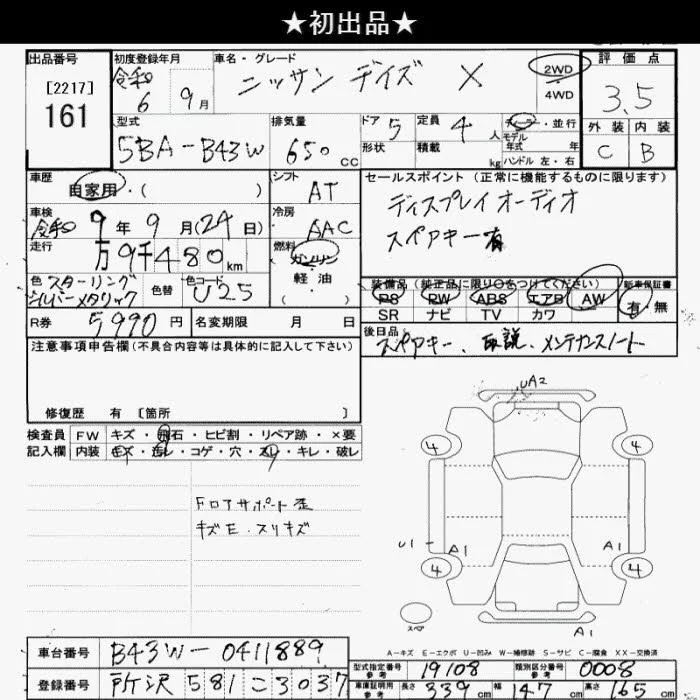 ★初出品★
出品番号
[2217]
161
初度登録年月
令和 6 9月
車名・グレード
ニッサン デイズ X
2WD
4WD
評価点
3.5
外装 内装
C B
型式
5BA-B43W
排気量
650 cc
ドア 5
形状
定員 4人
積載 kg
ディーラー・並行
モデル年式 年
ハンドル 左・右
車歴
自家用・( )
シフト
AT
セールスポイント (正常に機能するものに限ります)
ディスプレイオーディオ
スペアキー有
車検
令和 9年 9月(24日)
冷房
AAC
走行
万9千480km
燃料
ガソリン
軽油
( )
色 スターリングシルバーメタリック
色替
色コード
U25
装備品 (純正品に限り○をつけてください)
PS PW ABS エアB AW
SR ナビ TV カワ
新車保証書
有・無
R券 5990円
名変期限 月 日
後日品
スペアキー、取説、メンテナンスノート
注意事項申告欄(不具合内容等は具体的に記入して下さい)
修復歴 有 [箇所 ]
検査員記入欄
FW キズ・飛石・ヒビ割・リペア跡・×要
内装 コゲ・穴・スレ・キレ・破レ
キズE.スリキズ
UA2
4 4
U1 A1 A1
4 4
スペ
A-キズ E-エクボ U-凹み W-補修跡 S-サビ C-腐食 XX-交換済
車台番号 B43W-0411889
登録番号 所沢 581 こ 3037
型式指定番号 参考 19108
類別区分番号 参考 0008
車庫証明用 参考 長さ 339cm 幅 147cm 高さ 165cm